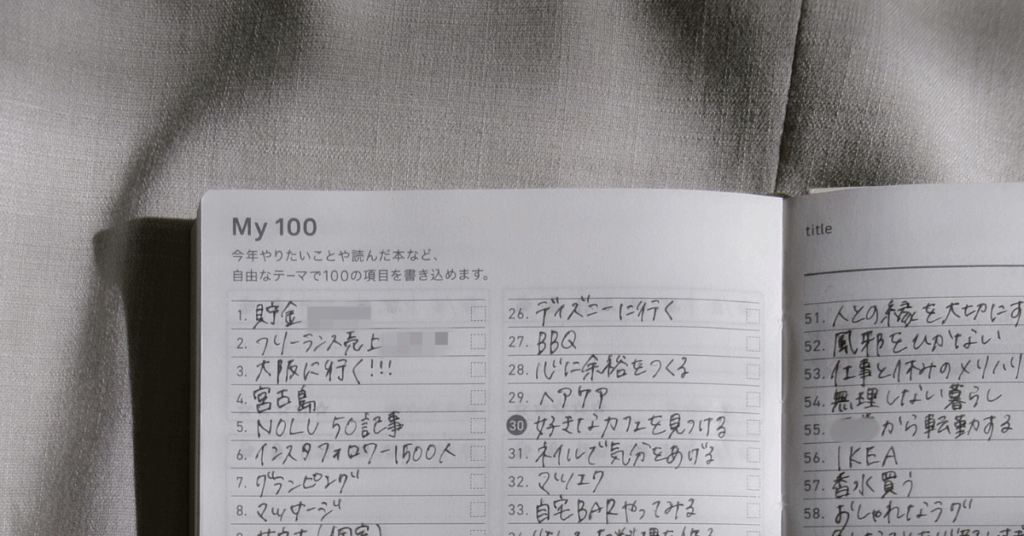 My 100
今年やりたいことや読んだ本など、
自由なテーマで100の項目を書き込めます。
1. 貯金
2. フリーランス売上
3. 大阪に行く!!!
4. 宮古島
5. NOLU 50記事
6. インスタフォロワー1500人
7. グランピング
8. マッサージ
26. ディズニーに行く
27. BBQ
28. 心に余裕をつくる
29. ヘアケア
30 好きなカフェを見つける
31. ネイルで気分をあげる
32. マツエク
33. 自宅BARやってみる
title
51. 人との縁を大切にす
52. 風邪をひかない
53. 仕事と休みのメリハリ
54. 無理しない暮らし
55. から転勤する
56. IKEA
57. 香水買う
58. おしゃれなラグ